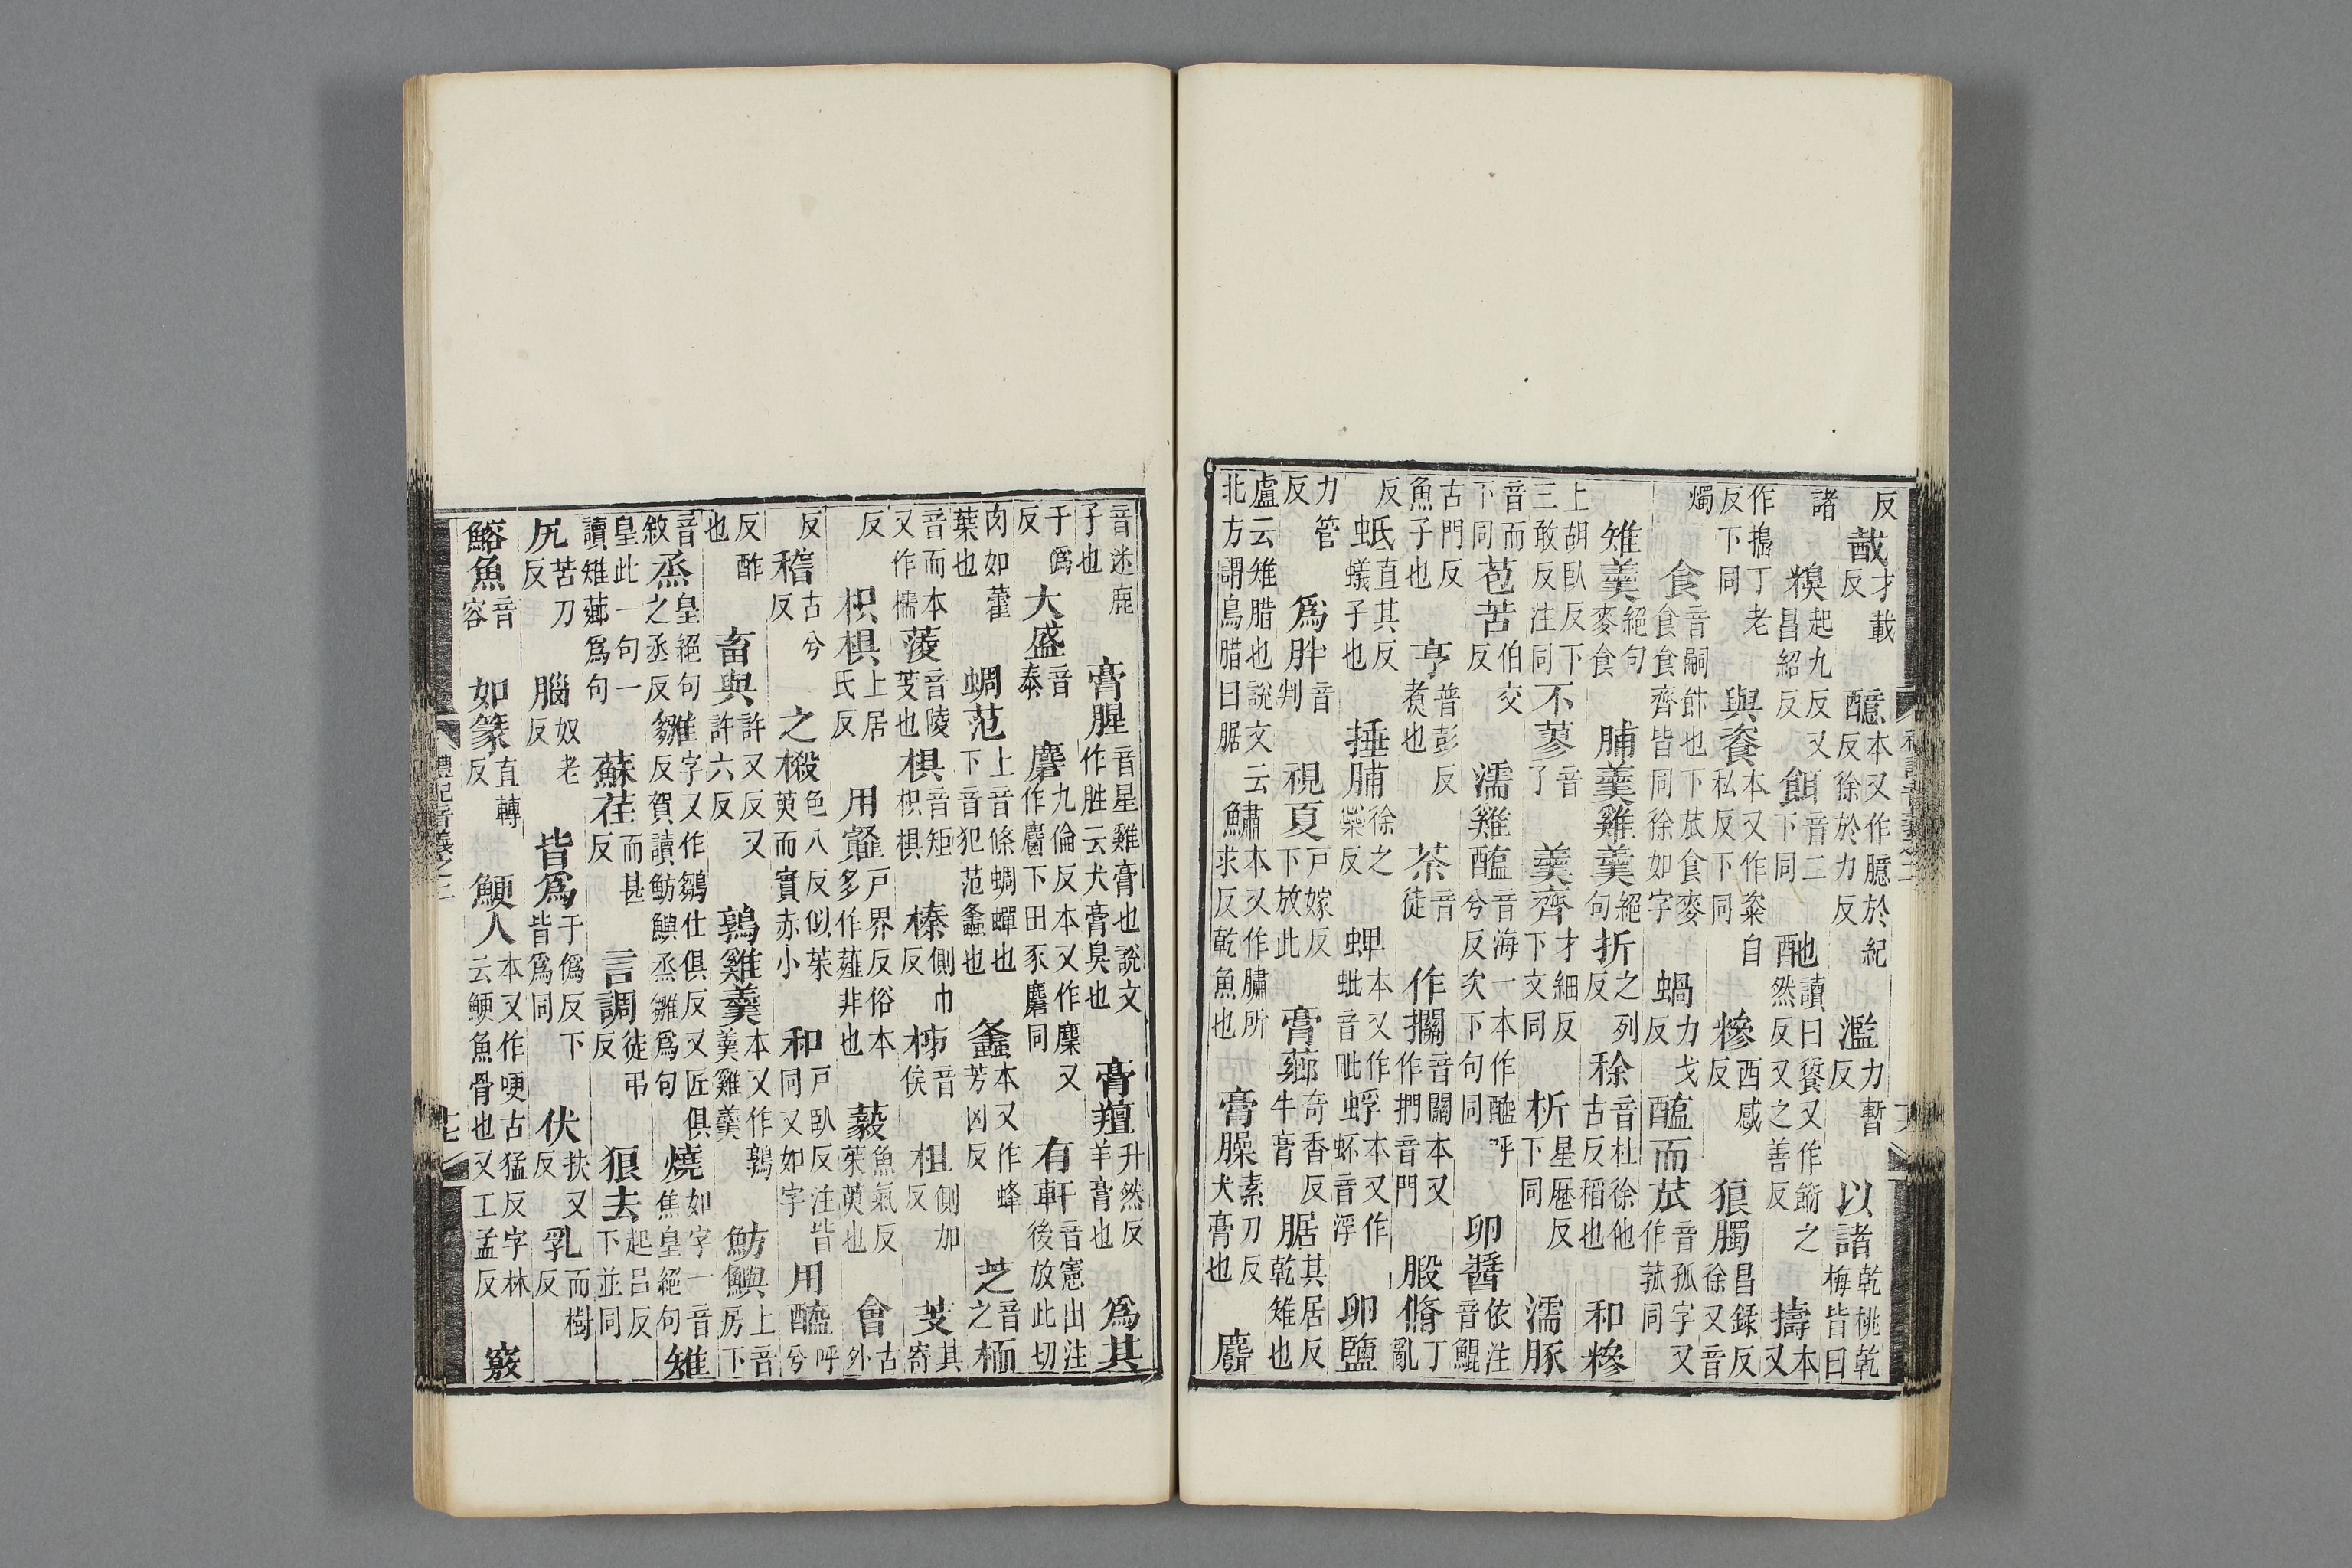 反酨才載反醷本又作臆於紀反徐於力反濫力暫反以諸乾桃乾梅皆曰
諸糗起九反又昌紹反餌音二下同酏讀曰餐又作餰之然反又之善反擣本又
作搗丁老反下同與餈本又作粢自私反下同糝西感反狼臅昌錄反徐又音
燭食音嗣飰也下苽食麥食食齊皆同徐如字蝸力戈反醢而苽音孤字又作菰同
雉羹絕句麥食脯羹雞羹絕句折之列反稌音杜徐他古反稻也和糝
上胡臥反下三敢反注同不蓼音了羹齊才細反下文同析星歷反下同濡豚
音而下同苞苦伯交反濡雞醢音海一本作醯呼兮反次下句同卵醬依注音鯤
古門反魚子也亨普彭反煮也荼音徒作攔音關本又作捫音門腶脩丁亂
反蚳直其反蟻子也捶脯徐之橤反蜱本又作蚍音毗蜉本又作蚽音浮卵鹽
力管反為胖音判視夏戶嫁反下放此膏薌奇香反牛膏腒其居反乾雉也
盧云雉腊也說文云北方謂鳥腊曰腒鱐本又作䐹所求反乾魚也膏臊素刀反犬膏也麛
音迷鹿子也膏腥音星雞膏也說文作胜云犬膏臭也膏羶升然反羊膏也為其
于偽反大盛音泰麕九倫反本又作麇又作麏下田豕麕同有軒音憲出注後放此切
肉如藿葉也蜩范上音條蜩蟬也下音犯范螽也螽本又作蜂芳凶反芝音之栭
音而本又作檽蔆音陵芰也椇音矩枳椇榛側巾反柿音俟柤側加反芰其寄
反枳椇上居氏反用韰戶界反俗本多作薤非也藙魚氣反茱萸也會古外
反稽古兮反之樧色八反似茱萸而實赤小和戶臥反注皆同又如字用醯呼兮
反酢也畜與許又反又許六反鶉雞羹本又作鶉羹雞羹魴鱮上音房下
音敘烝皇絕句之丞反雛字又作鶵仕俱反又匠俱反賀讀魴鱮烝雛為句燒如字一音焦皇絕句雉
皇此一句一讀雉薌為句蘇荏而甚反言調徒弔反狼去起呂反下並同
尻苦刀反腦奴老反皆為于偽反下皆為同伏扶又反乳而樹反
鰫魚音容如篆直轉反鯁人本又作哽古猛反字林云鯁魚骨也又工孟反竅
禮記音義之二